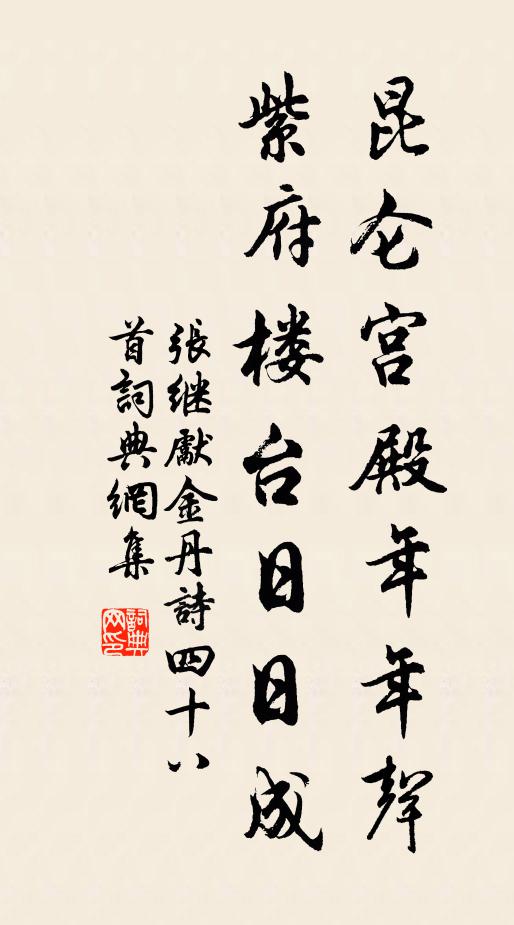 昆仑宫殿年年聲
紫府楼台日日成
張继獻金丹詩四十八
首詞典網集
詞典
网印